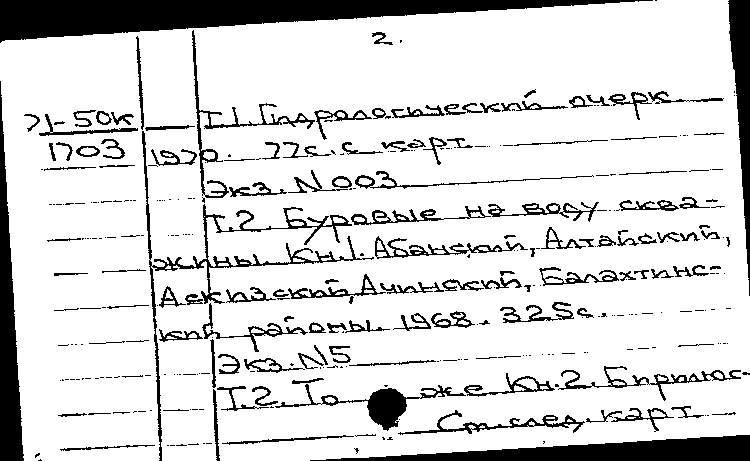 2.
71-50к Т.1. Гидрологический очерк.
1703 1970. 77с. с карт.
Экз. N 003
Т.2. Буровые на воду сква-
жины. Кн.1. Абанский, Алтайский,
Аскизский, Ачинский, Балахтинс-
кий районы. 1968. 325с.
Экз. N5
Т.2. То же Кн.2. Бирилюс-
См. след. карт.